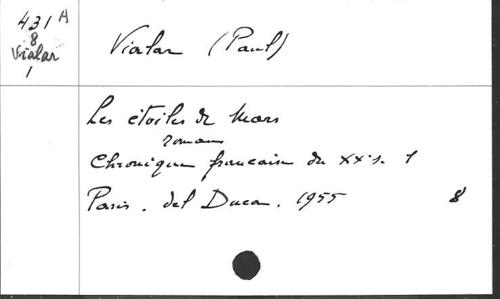 431 A
8
Vialar
1
Vialar (Paul)
Les étoiles de Mars
roman
Chronique française du XXe s. 1
Paris. del Duca. 1955 8